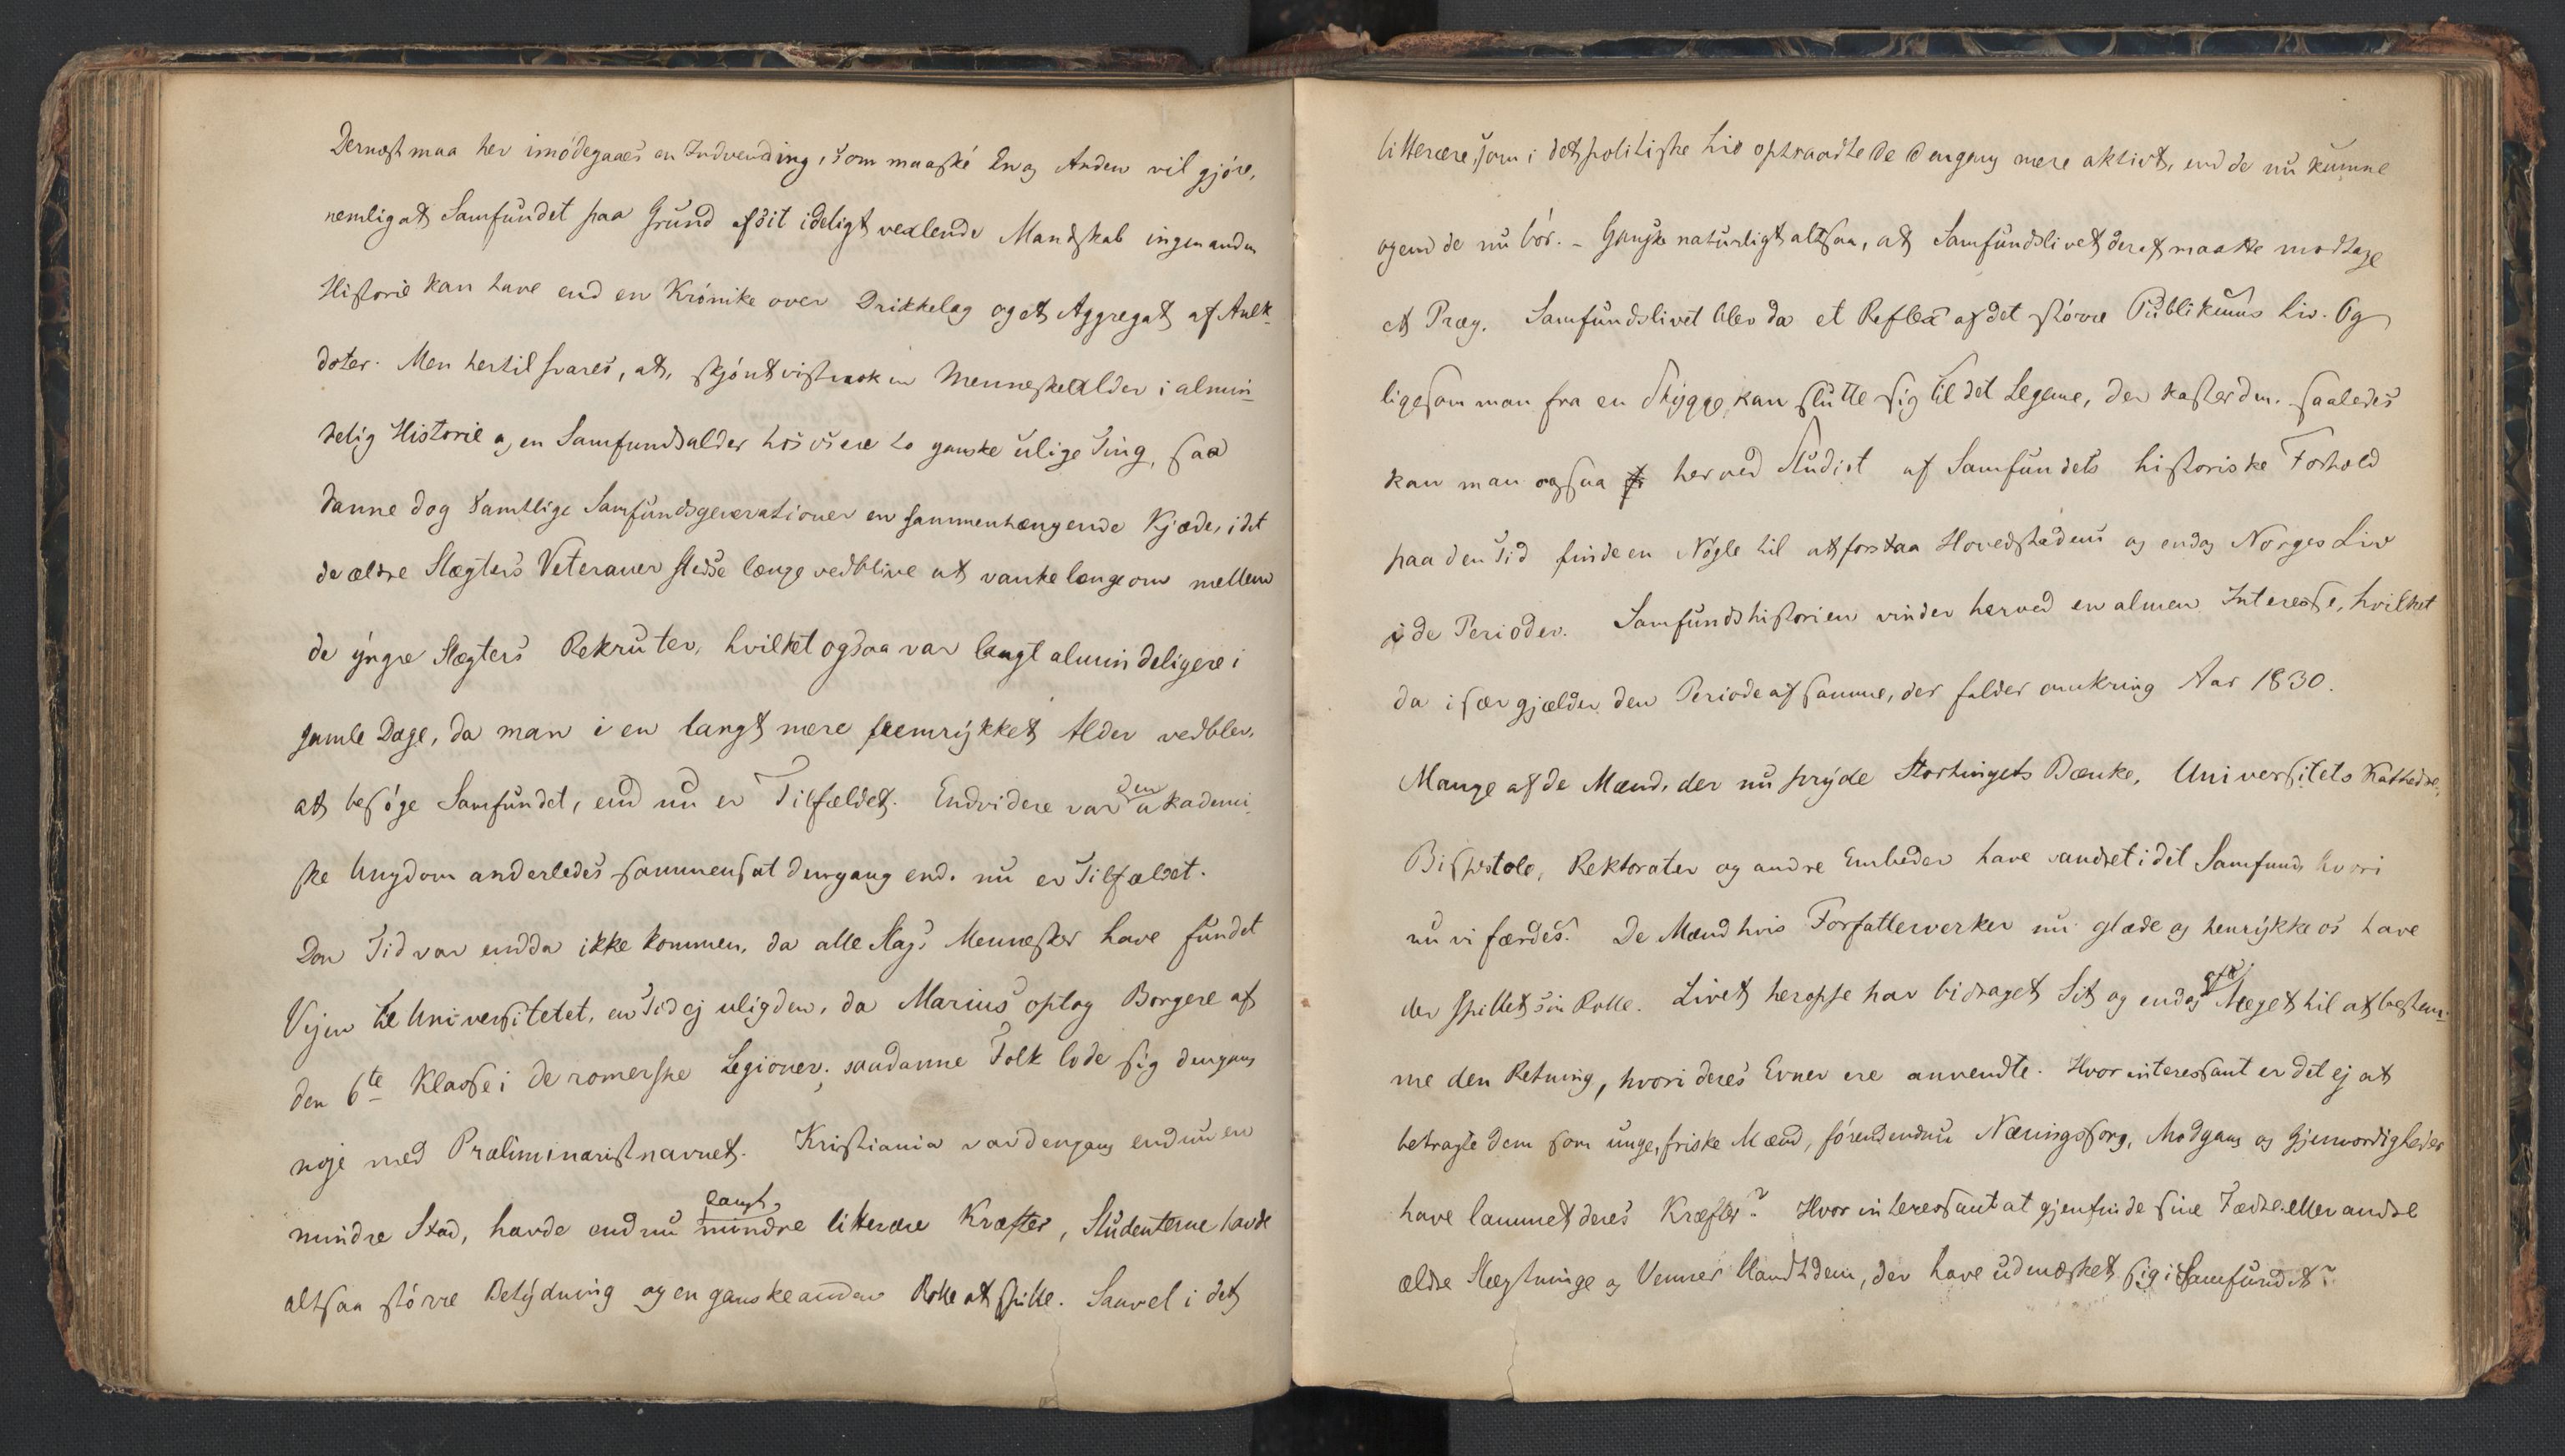 Dernæst maa her imødegaaes en Indvending, som maaské En og Anden vil gjóre,
nemlig at Samfundet paa Grund af sit ideligt vexlende Mandskab ingen anden
Historie kan have end en Krónike over Drikkelag og et Aggregat af Anek-
doter. Men hertil svares, at, skjónt vistnok en Menneskealder i almin-
delig Historie og en Samfundsalder hos os ere to ganske ulige Ting, saa
danne dog samtlige Samfundsgenerationer en sammenhængende Kjæde, idet
de ældre Slægters Veteraner stedse længe vedblive at vanke længe om mellem
de yngre Slægters Rekruter, hvilket ogsaa var langt almindeligere i
gamle Dage, da man i en langt mere fremrykket Alder vedblev,
at besóge Samfundet, end nu er Tilfældet. Endvidere var den akademi-
ske Ungdom anderledes sammensat dengang end. nu er Tilfældet.
Den Tid var endda ikke kommen, da alle Slags Mennesker have fundet
Vejen til Universitetet, en Tid ej ulig den, da Marius optog Borgere af
den 6te Klasse i de romerske Legioner; saadanne Folk lode sig dengang
noje med Præliminaristnavnet. Kristiania var dengang endnu en
mindre Stad, havde endnu langt mindre litterære Kræfter, Studenterne havde
altsaa stórre Betydning og en ganske anden Rolle at spille. Saavel i det
litterære, som i det politiske Liv optraadte de dengang mere aktivt, end de nu kunne
og end de nu bór. - Ganske naturligt altsaa, at Samfundslivet deraf maatte modtage
et Præg. Samfundslivet blev da et Reflex af det stórre Publikums Liv. Og
ligesom man fra en Skygge kan slutte sig til det Legeme, der kaster den. saaledes
kan man ogsaa herved Studiet af Samfundets historiske Forhold
paa den Tid finde en Nógle til at forstaa Hovedstadens og endog Norges Liv
i de Perioder. Samfundshistorien vinder herved en almen Interesse, hvilket
da især gjælder den Periode af samme, der falder omkring Aar 1830.
Mange af de Mænd, der nu pryde Storthingets Bænke, Universitets Kathedre,
Bispestole, Rektorater og andre Embeder have vandret i det Samfund, hvori
nu vi færdes. De Mænd hvis Forfatterverker nu glæde og henrykke os have
der spillet sin Rolle. Livet heroppe har bidraget Sit og endog ofte Meget til at bestem-
me den Retning, hvori deres Evner ere anvendte. Hvor interessant er det ej at
betragte dem som unge, friske Mænd, fórend endnu Næringssorg, Modgang og Gjenvordigheder
have lammet deres Kræfter? Hvor interessant at gjenfinde sine Fædre eller andre
ældre Slægtninge og Venner blandt dem, der have udmærket sig i Samfundet?